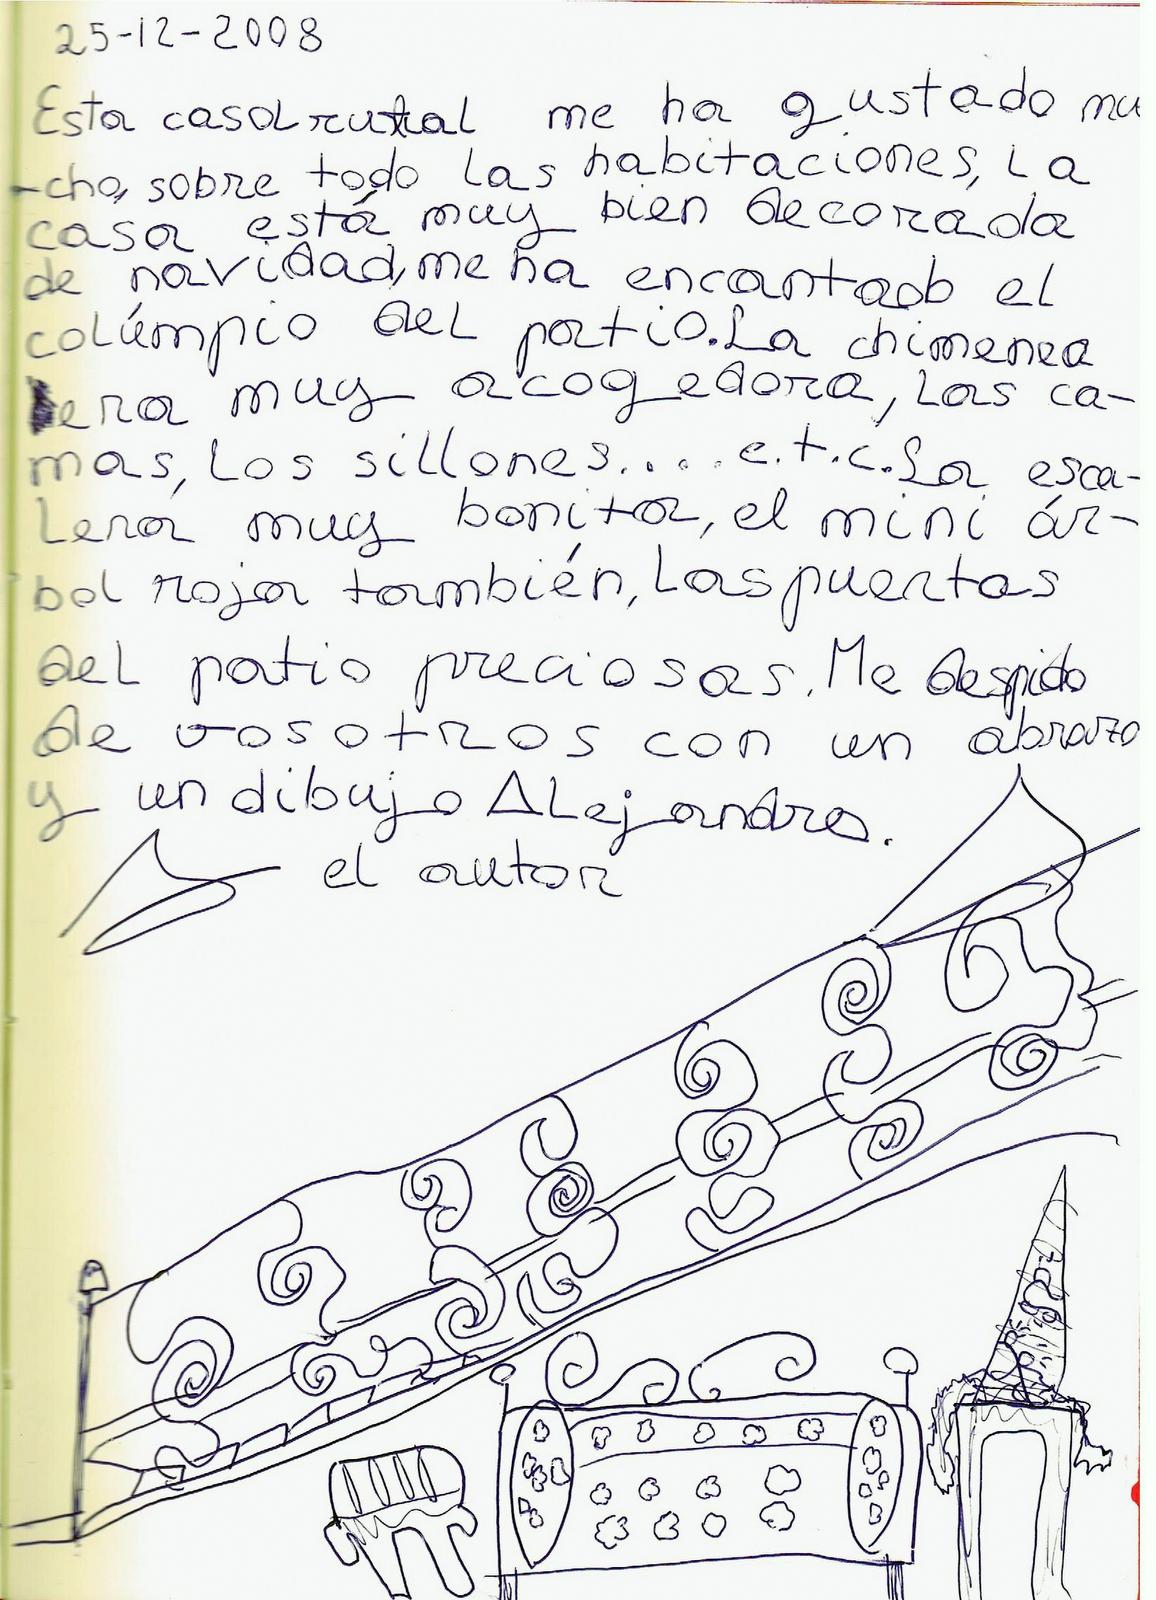 25-12-2008
Esta casa rural me ha gustado mu
-cho, sobre todo las habitaciones, La
casa está muy bien decorada
de navidad, me ha encantado el
colúmpio del patio. La chimenea
era muy acogedora, Las ca-
mas, Los sillones.... e.t.c. La esca-
Lera muy bonita, el mini ár-
bol rojo también, Las puertas
del patio preciosas. Me despido
de vosotros con un abrazo
y un dibujo ALejandro.
el autor